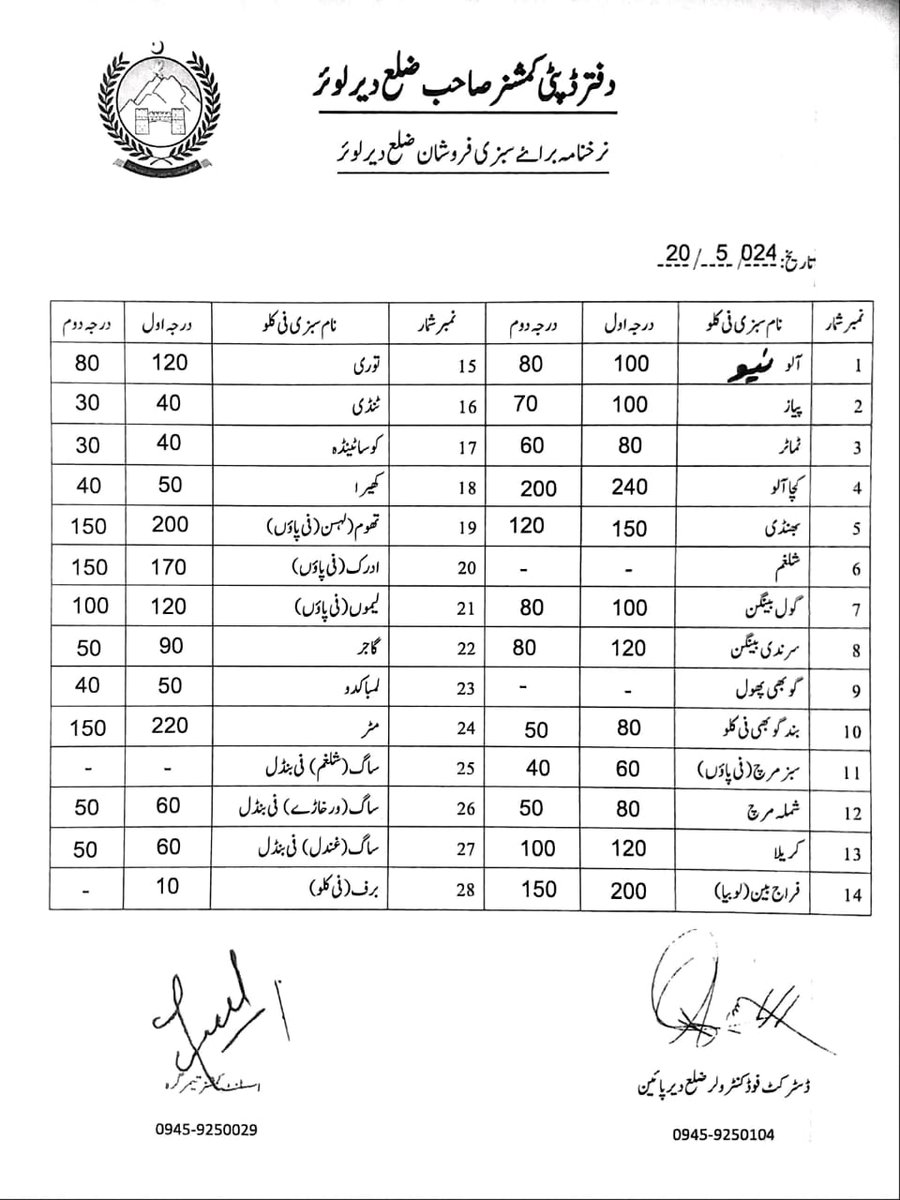 دفتر ڈپٹی کمشنر صاحب ضلع دیر لوئر
نرخنامہ برائے سبزی فروشان ضلع دیر لوئر
تاریخ: 20/5/024
نمبر شمار نام سبزی فی کلو درجہ اول درجہ دوم نمبر شمار نام سبزی فی کلو درجہ اول درجہ دوم
1 آلو نیو 100 80 15 توری 120 80
2 پیاز 100 70 16 ٹنڈی 40 30
3 ٹماٹر 80 60 17 کوسا ٹینڈہ 40 30
4 کچا آلو 240 200 18 کھیرا 50 40
5 بھنڈی 150 120 19 تھوم (لہسن) (فی پاؤں) 200 150
6 شلغم - - 20 ادرک (فی پاؤں) 170 150
7 گول بینگن 100 80 21 لیموں (فی پاؤں) 120 100
8 سرندی بینگن 120 80 22 گاجر 90 50
9 گوبھی پھول - - 23 لمبا کدو 50 40
10 بند گوبھی فی کلو 80 50 24 مٹر 220 150
11 سبز مرچ (فی پاؤں) 60 40 25 ساگ (شلغم) فی بنڈل - -
12 شملہ مرچ 80 50 26 ساگ (ورخاڑے) فی بنڈل 60 50
13 کریلا 120 100 27 ساگ (غندل) فی بنڈل 60 50
14 فراج بین (لوبیا) 200 150 28 برف (فی کلو) 10 -
ڈسٹرکٹ فوڈ کنٹرولر ضلع دیر پائین
0945-9250104
اسسٹنٹ کمشنر تیمرگرہ
0945-9250029